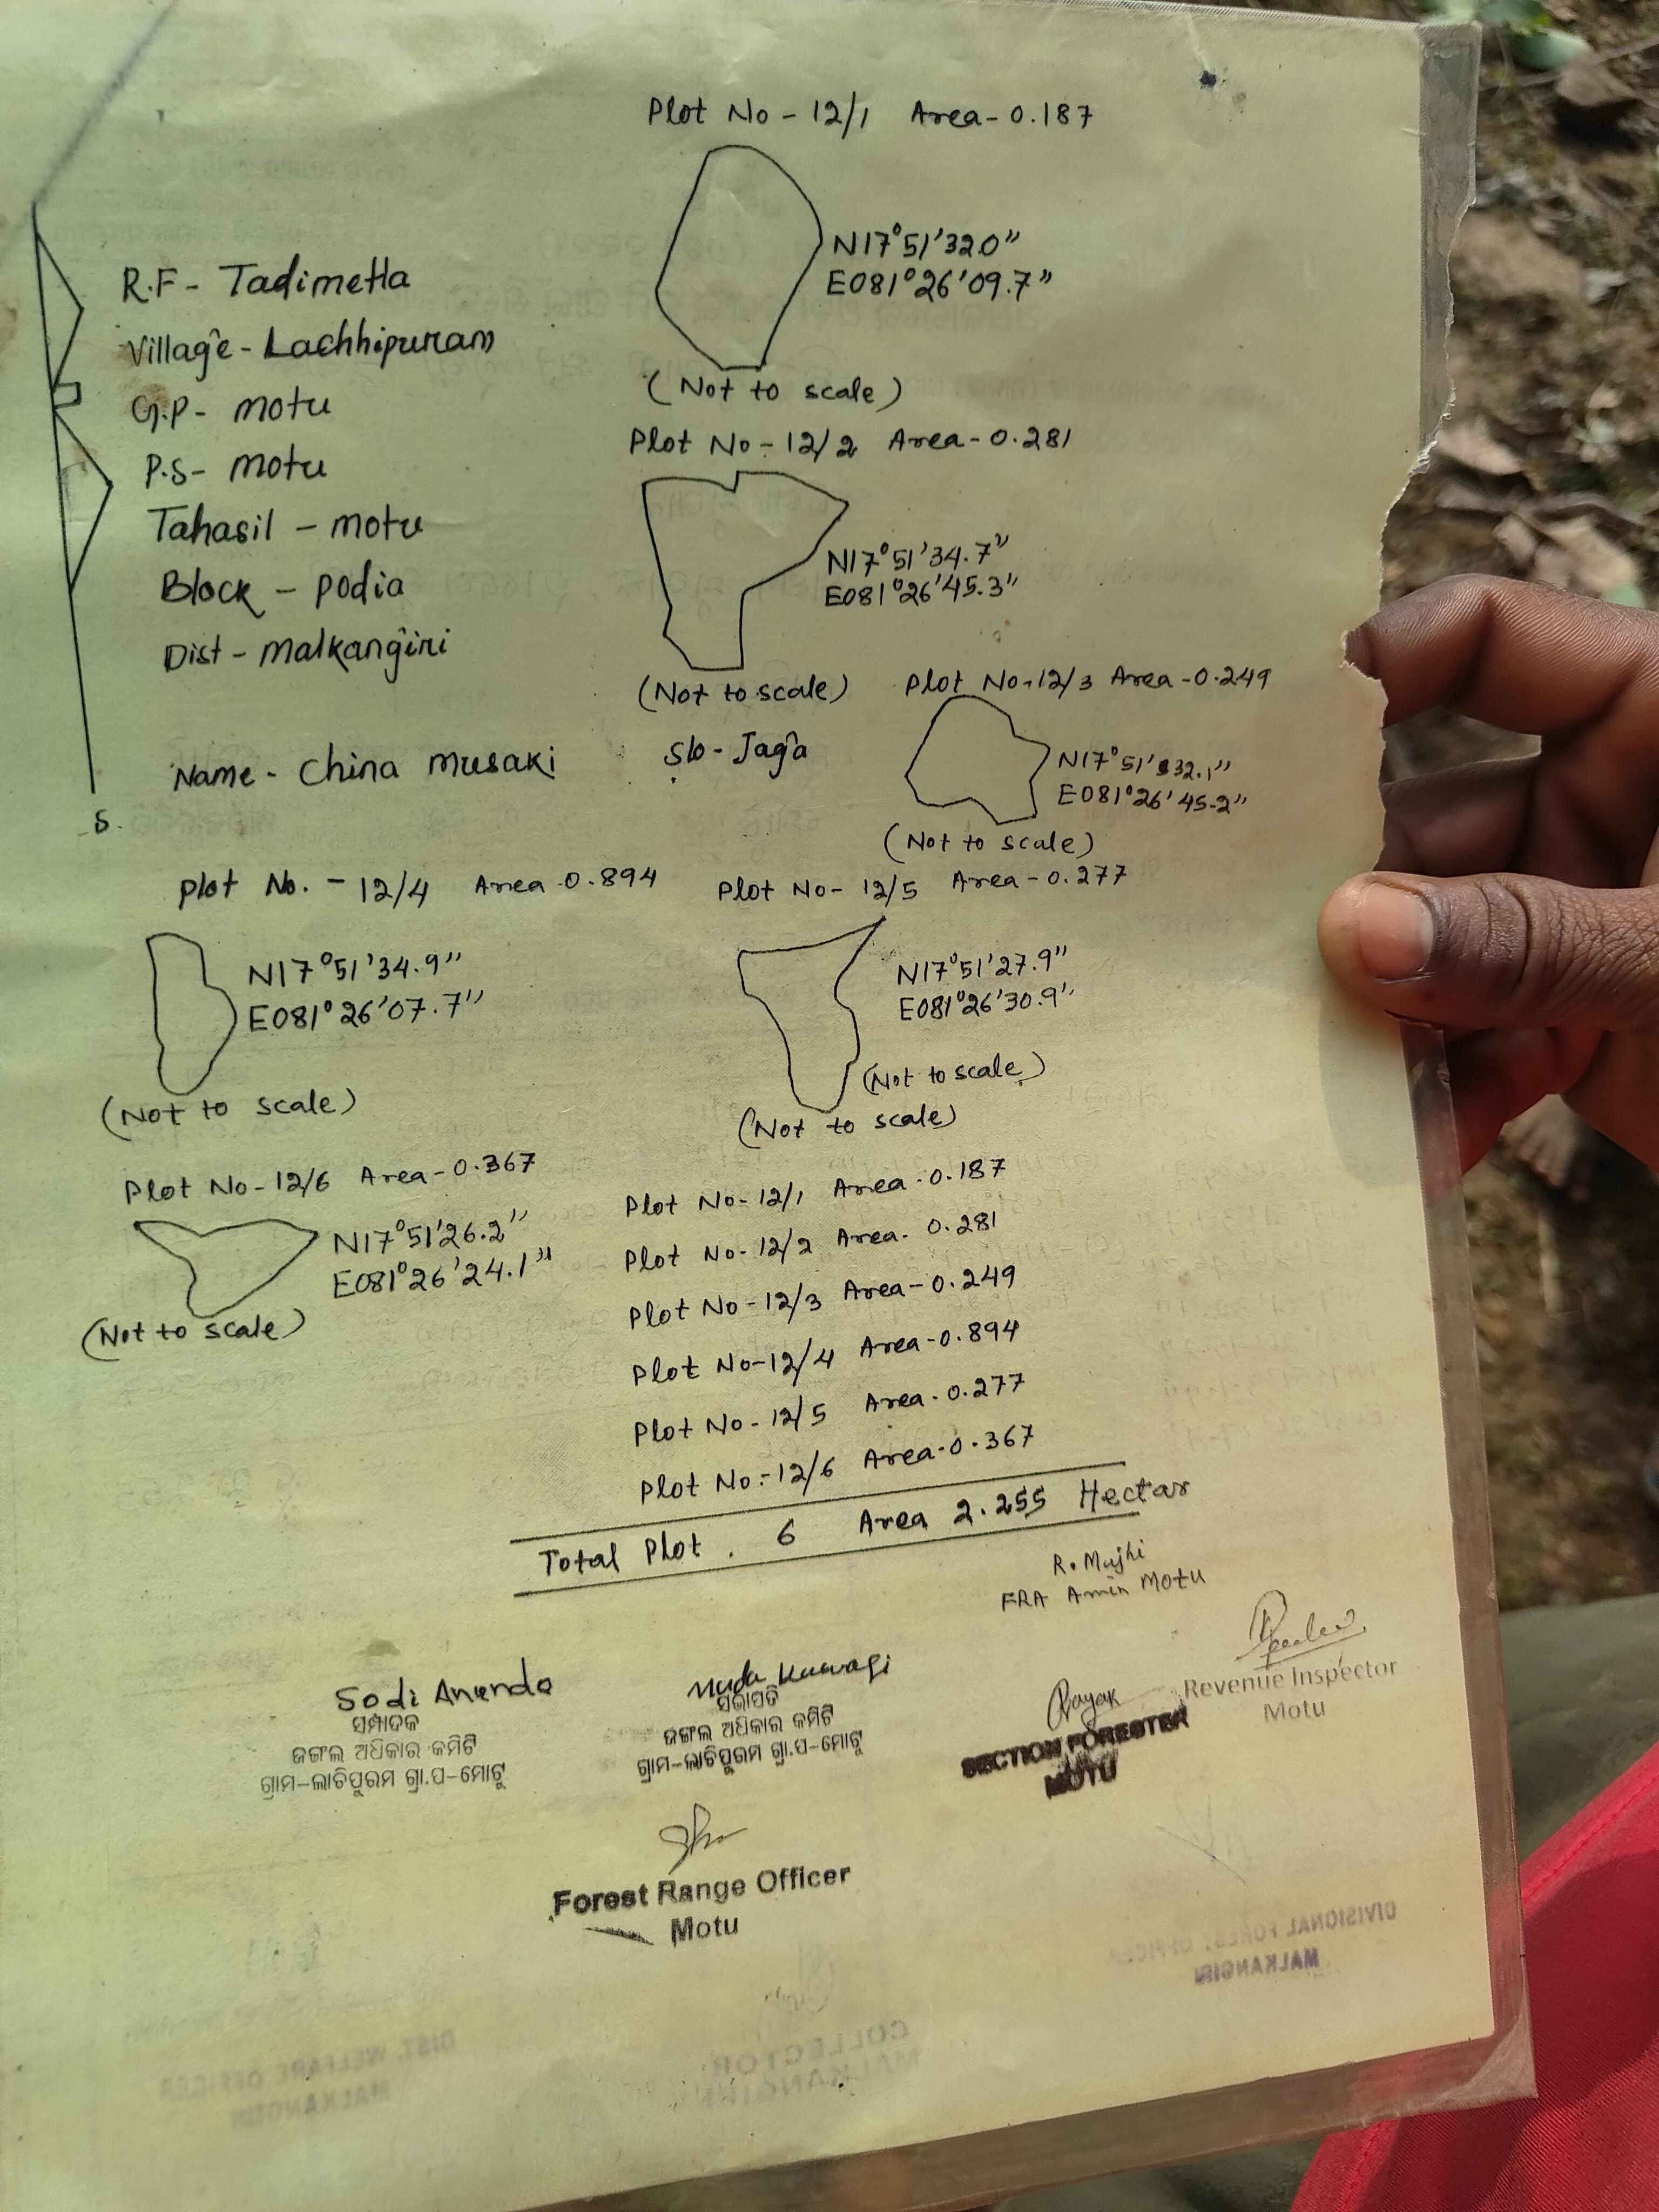 Plot No - 12/1 Area - 0.187
N17°51'32.0"
E081°26'09.7"
(Not to scale)
R.F - Tadimetla
Village - Lachhipuram
G.P - motu
P.S - motu
Tahasil - motu
Block - podia
Dist - malkangiri
Plot No - 12/2 Area - 0.281
N17°51'34.7"
E081°26'45.3"
(Not to scale)
Plot No - 12/3 Area - 0.249
N17°51'32.1"
E081°26'45.2"
(Not to scale)
Name - China musaki S/o - Jaga
S.
Plot No. - 12/4 Area 0.894
N17°51'34.9"
E081°26'07.7"
(Not to scale)
Plot No - 12/5 Area - 0.277
N17°51'27.9"
E081°26'30.9"
(Not to scale)
(Not to scale)
Plot No - 12/6 Area - 0.367
N17°51'26.2"
E081°26'24.1"
(Not to scale)
Plot No - 12/1 Area - 0.187
Plot No - 12/2 Area - 0.281
Plot No - 12/3 Area - 0.249
Plot No - 12/4 Area - 0.894
Plot No - 12/5 Area - 0.277
Plot No - 12/6 Area - 0.367
Total Plot . 6 Area 2.255 Hectar
R. Majhi
FRA Amin Motu
Sodi Ananda
ସମ୍ପାଦକ
ଜଙ୍ଗଲ ଅଧିକାର କମିଟି
ଗ୍ରାମ-ଲାଚିପୁରମ ଗ୍ରା.ପ-ମୋଟୁ
ସଭାପତି
ଜଙ୍ଗଲ ଅଧିକାର କମିଟି
ଗ୍ରାମ-ଲାଚିପୁରମ ଗ୍ରା.ପ-ମୋଟୁ
SECTION FORESTER
MOTU
Revenue Inspector
Motu
Forest Range Officer
Motu
DIVISIONAL FOREST OFFICER
MALKANGIRI
COLLECTOR
MALKANGIRI
DIST. WELFARE OFFICER
MALKANGIRI